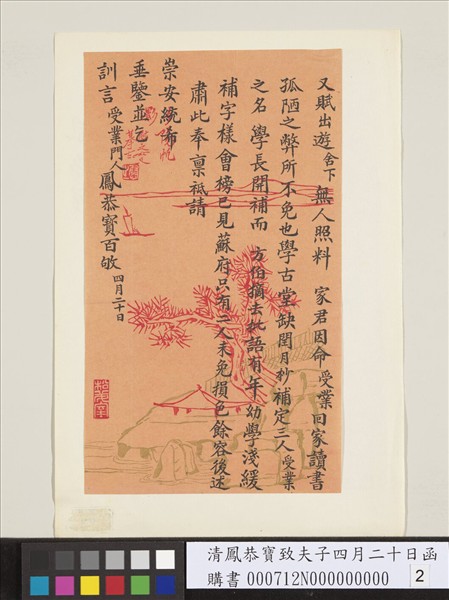 又賦出遊舍下無人照料 家君因命受業回家讀書
孤陋之弊所不免也學古堂缺閏月杪補定三人受業
之名 學長開補而 方伯摘去批語有年幼學淺緩
補字樣會榜已見蘇府只有二人未免損色餘容後述
肅此奉稟祗請
崇安統希
垂鑒並乞
訓言 受業門人鳳恭寶百敂 四月二十日
清鳳恭寶致夫子四月二十日函
購書 000712N000000000 2